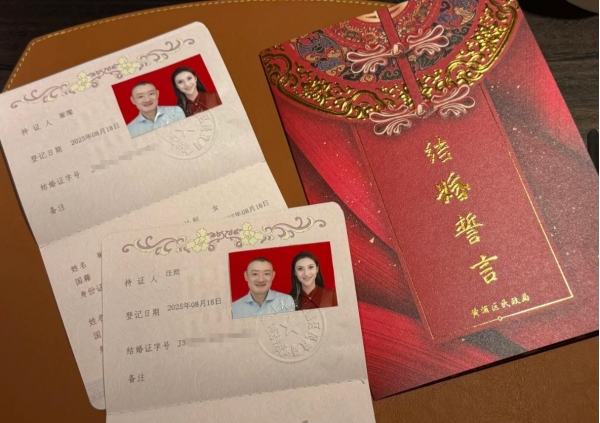 持证人
登记日期 2025年08月18日
结婚证字号 J
备注
姓名
国籍
身份证
姓名
国籍
女
08月18日
持证人 汪
登记日期 2025年08月18日
结婚证字号 J3
备注
结婚誓言
黄浦区民政局